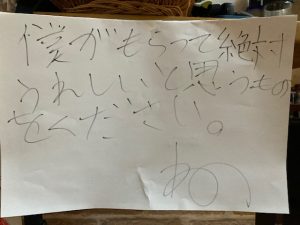 僕がもらって絶対
うれしいと思うもの
をください。
あの